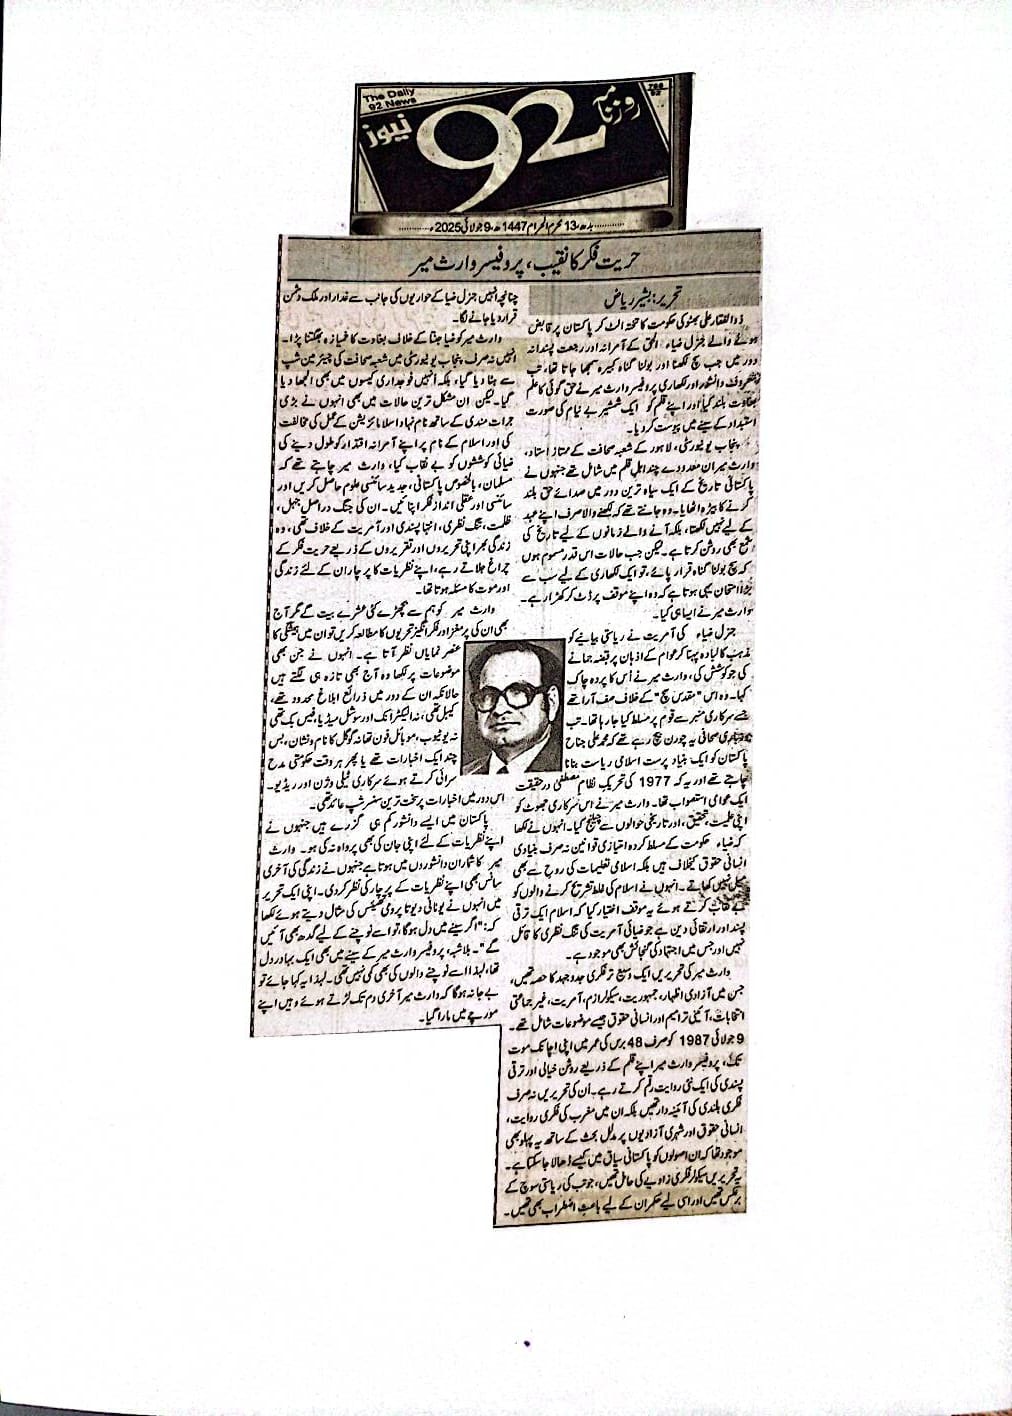 The Daily
92 News
روزنامہ
92
نیوز
786
92
بدھ، 13 محرم الحرام 1447ھ، 9 جولائی 2025ء
حریت فکر کا نقیب، پروفیسر وارث میر
تحریر: بشیر ریاض
ذوالفقار علی بھٹو کی حکومت کا تختہ الٹ کر پاکستان پر قابض
ہونے والے جنرل ضیاء الحق کے آمرانہ اور رجعت پسندانہ
دور میں جب سچ لکھنا اور بولنا گناہ کبیرہ سمجھا جاتا تھا، تب
معروف دانشور اور لکھاری پروفیسر وارث میر نے حق گوئی کا علم
بغاوت بلند کیا اور اپنے قلم کو ایک شمشیر بے نیام کی صورت
استبداد کے سینے میں پیوست کر دیا۔
پنجاب یونیورسٹی، لاہور کے شعبہ صحافت کے ممتاز استاد،
وارث میر ان معدودے چند اہل قلم میں شامل تھے جنہوں نے
پاکستانی تاریخ کے ایک سیاہ ترین دور میں صدائے حق بلند
کرنے کا بیڑہ اٹھایا۔ وہ جانتے تھے کہ لکھنے والا صرف اپنے عہد
کے لیے نہیں لکھتا، بلکہ آنے والے زمانوں کے لیے تاریخ کی
شمع بھی روشن کرتا ہے۔ لیکن جب حالات اس قدر مسموم ہوں
کہ سچ بولنا گناہ قرار پائے، تو ایک لکھاری کے لیے سب سے
بڑا امتحان یہی ہوتا ہے کہ وہ اپنے موقف پر ڈٹ کر کھڑا رہے۔
وارث میر نے ایسا ہی کیا۔
جنرل ضیاء کی آمریت نے ریاستی بیانیے کو
مذہب کا لبادہ پہنا کر عوام کے اذہان پر قبضہ جمانے
کی جو کوشش کی، وارث میر نے اُس کا پردہ چاک
کیا۔ وہ اس "مقدس سچ" کے خلاف صف آرا تھے
جسے سرکاری منبر سے قوم پر مسلط کیا جا رہا تھا۔ تب
صحافی یہ چورن بیچ رہے تھے کہ محمد علی جناح
پاکستان کو ایک بنیاد پرست اسلامی ریاست بنانا
چاہتے تھے اور یہ کہ 1977 کی تحریک نظام مصطفیٰ درحقیقت
ایک عوامی استصواب تھا۔ وارث میر نے اس سرکاری جھوٹ کو
اپنی علمیت، تحقیق، اور تاریخی حوالوں سے چیلنج کیا۔ انہوں نے لکھا
کہ ضیاء حکومت کے مسلط کردہ امتیازی قوانین نہ صرف بنیادی
انسانی حقوق کیخلاف ہیں بلکہ اسلامی تعلیمات کی روح سے بھی
میل نہیں کھاتے۔ انہوں نے اسلام کی غلط تشریح کرنے والوں کو
بے نقاب کرتے ہوئے یہ موقف اختیار کیا کہ اسلام ایک ترقی
پسند اور ارتقائی دین ہے جو ضیائی آمریت کی تنگ نظری کا قائل
نہیں اور جس میں اجتہاد کی گنجائش بھی موجود ہے۔
وارث میر کی تحریریں ایک وسیع تر فکری جدوجہد کا حصہ تھیں،
جن میں آزادی اظہار، جمہوریت، سیکولرازم، آمریت، غیر جماعتی
انتخابات، آئینی ترامیم اور انسانی حقوق جیسے موضوعات شامل تھے۔
9 جولائی 1987 کو صرف 48 برس کی عمر میں اپنی اچانک موت
تک، پروفیسر وارث میر اپنے قلم کے ذریعے روشن خیالی اور ترقی
پسندی کی ایک نئی روایت رقم کرتے رہے۔ ان کی تحریریں نہ صرف
فکری بلندی کی آئینہ دار تھیں بلکہ ان میں مغرب کی فکری روایت،
انسانی حقوق اور شہری آزادیوں پر مدلل بحث کے ساتھ یہ پہلو بھی
موجود تھا کہ ان اصولوں کو پاکستانی سیاق میں کیسے ڈھالا جا سکتا ہے۔
یہ تحریریں سیکولر فکری زاویے کی حامل تھیں، جو تب کی ریاستی سوچ کے
برعکس تھیں اور اسی لیے حکمران کے لیے باعث اضطراب بھی تھیں۔
چنانچہ انہیں جنرل ضیا کے حواریوں کی جانب سے غدار اور ملک دشمن
قرار دیا جانے لگا۔
وارث میر کو ضیا جنتا کے خلاف بغاوت کا خمیازہ بھگتنا پڑا۔
انہیں نہ صرف پنجاب یونیورسٹی میں شعبہ صحافت کی چیئرمین شپ
سے ہٹا دیا گیا، بلکہ انہیں فوجداری کیسوں میں بھی الجھا دیا
گیا۔ لیکن ان مشکل ترین حالات میں بھی انہوں نے بڑی
جرات مندی کے ساتھ نام نہاد اسلامائزیشن کے عمل کی مخالفت
کی اور اسلام کے نام پر اپنے آمرانہ اقتدار کو طول دینے کی
ضیائی کوششوں کو بے نقاب کیا، وارث میر چاہتے تھے کہ
مسلمان، بالخصوص پاکستانی، جدید سائنسی علوم حاصل کریں اور
سائنسی اور عقلی انداز فکر اپنائیں۔ ان کی جنگ دراصل جہل،
ظلمت، تنگ نظری، انتہا پسندی اور آمریت کے خلاف تھی، وہ
زندگی بھر اپنی تحریروں اور تقریروں کے ذریعے حریت فکر کے
چراغ جلاتے رہے، اپنے نظریات کا پرچار ان کے لئے زندگی
اور موت کا مسئلہ ہوتا تھا۔
وارث میر کو ہم سے بچھڑے کئی عشرے بیت گئے مگر آج
بھی ان کی پرمغز اور فکر انگیز تحریروں کا مطالعہ کریں تو ان میں ہمیشگی کا
عنصر نمایاں نظر آتا ہے۔ انہوں نے جن بھی
موضوعات پر لکھا وہ آج بھی تازہ ہی لگتے ہیں
حالانکہ ان کے دور میں ذرائع ابلاغ محدود تھے،
کیبل تھی، نہ الیکٹرانک اور سوشل میڈیا، فیس بک تھی
نہ یوٹیوب، موبائل فون تھا نہ گوگل کا نام و نشان، بس
چند ایک اخبارات تھے یا پھر ہر وقت حکومتی مدح
سرائی کرتے ہوئے سرکاری ٹیلی وژن اور ریڈیو۔
اس دور میں اخبارات پر سخت ترین سنسر شپ عائد تھی۔
پاکستان میں ایسے دانشور کم ہی گزرے ہیں جنہوں نے
اپنے نظریات کے لئے اپنی جان کی بھی پرواہ نہ کی ہو۔ وارث
میر کا شمار ان دانشوروں میں ہوتا ہے جنہوں نے زندگی کی آخری
سانس بھی اپنے نظریات کے پرچار کی نظر کر دی۔ اپنی ایک تحریر
میں انہوں نے یونانی دیوتا پرومی تھیئس کی مثال دیتے ہوئے لکھا
کہ: "اگر سینے میں دل ہوگا، تو اسے نوچنے کے لیے گدھ بھی آئیں
گے"۔ بلاشبہ، پروفیسر وارث میر کے سینے میں بھی ایک بہادر دل
تھا، لہٰذا اسے نوچنے والوں کی بھی کمی نہیں تھی۔ لہذا یہ کہا جائے تو
بے جا نہ ہوگا کہ وارث میر آخری دم تک لڑتے ہوئے وہیں اپنے
مورچے میں مارا گیا۔